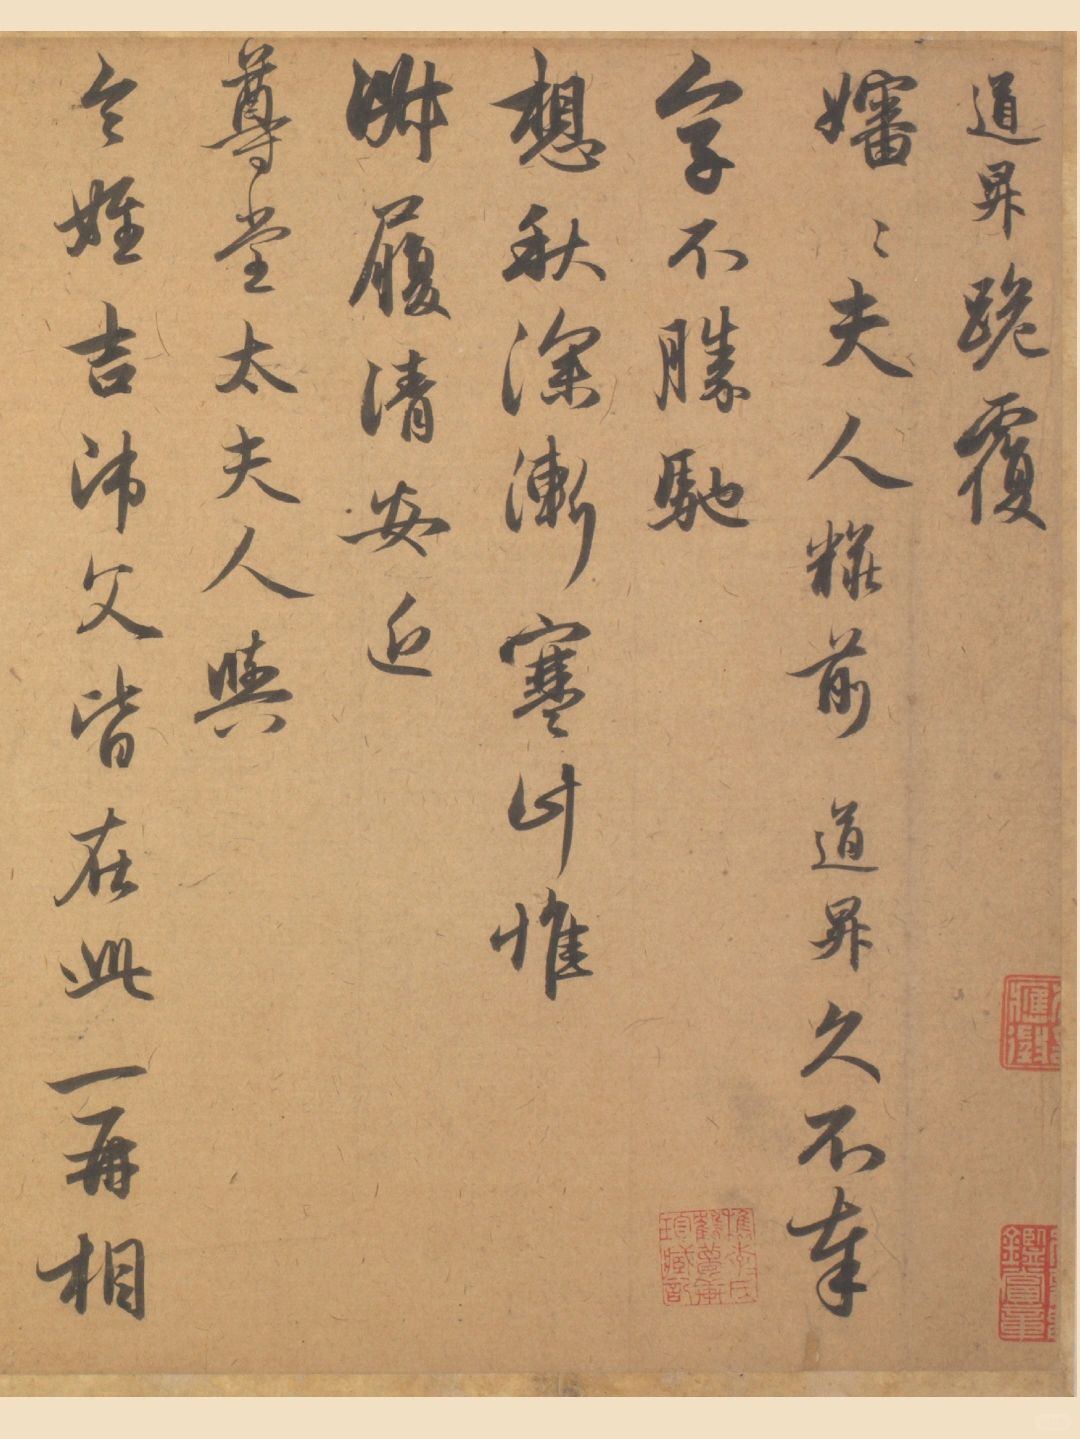 道昇跪覆
嬸〻夫人粧前道昇久不奉
字不勝馳
想秋深漸寒計惟
淑履清安近
尊堂太夫人與
令姪吉師父皆在此一再相